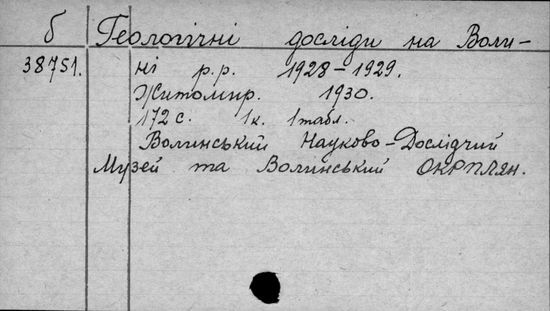 б Геологічні досліди на Воли-
38751. ні р.р. 1928-1929.
Житомир. 1930.
172 с. 1к. 1 табл.
Волинський Науково-Дослідчий
Музей та Волинський ОКРПЛЯН.